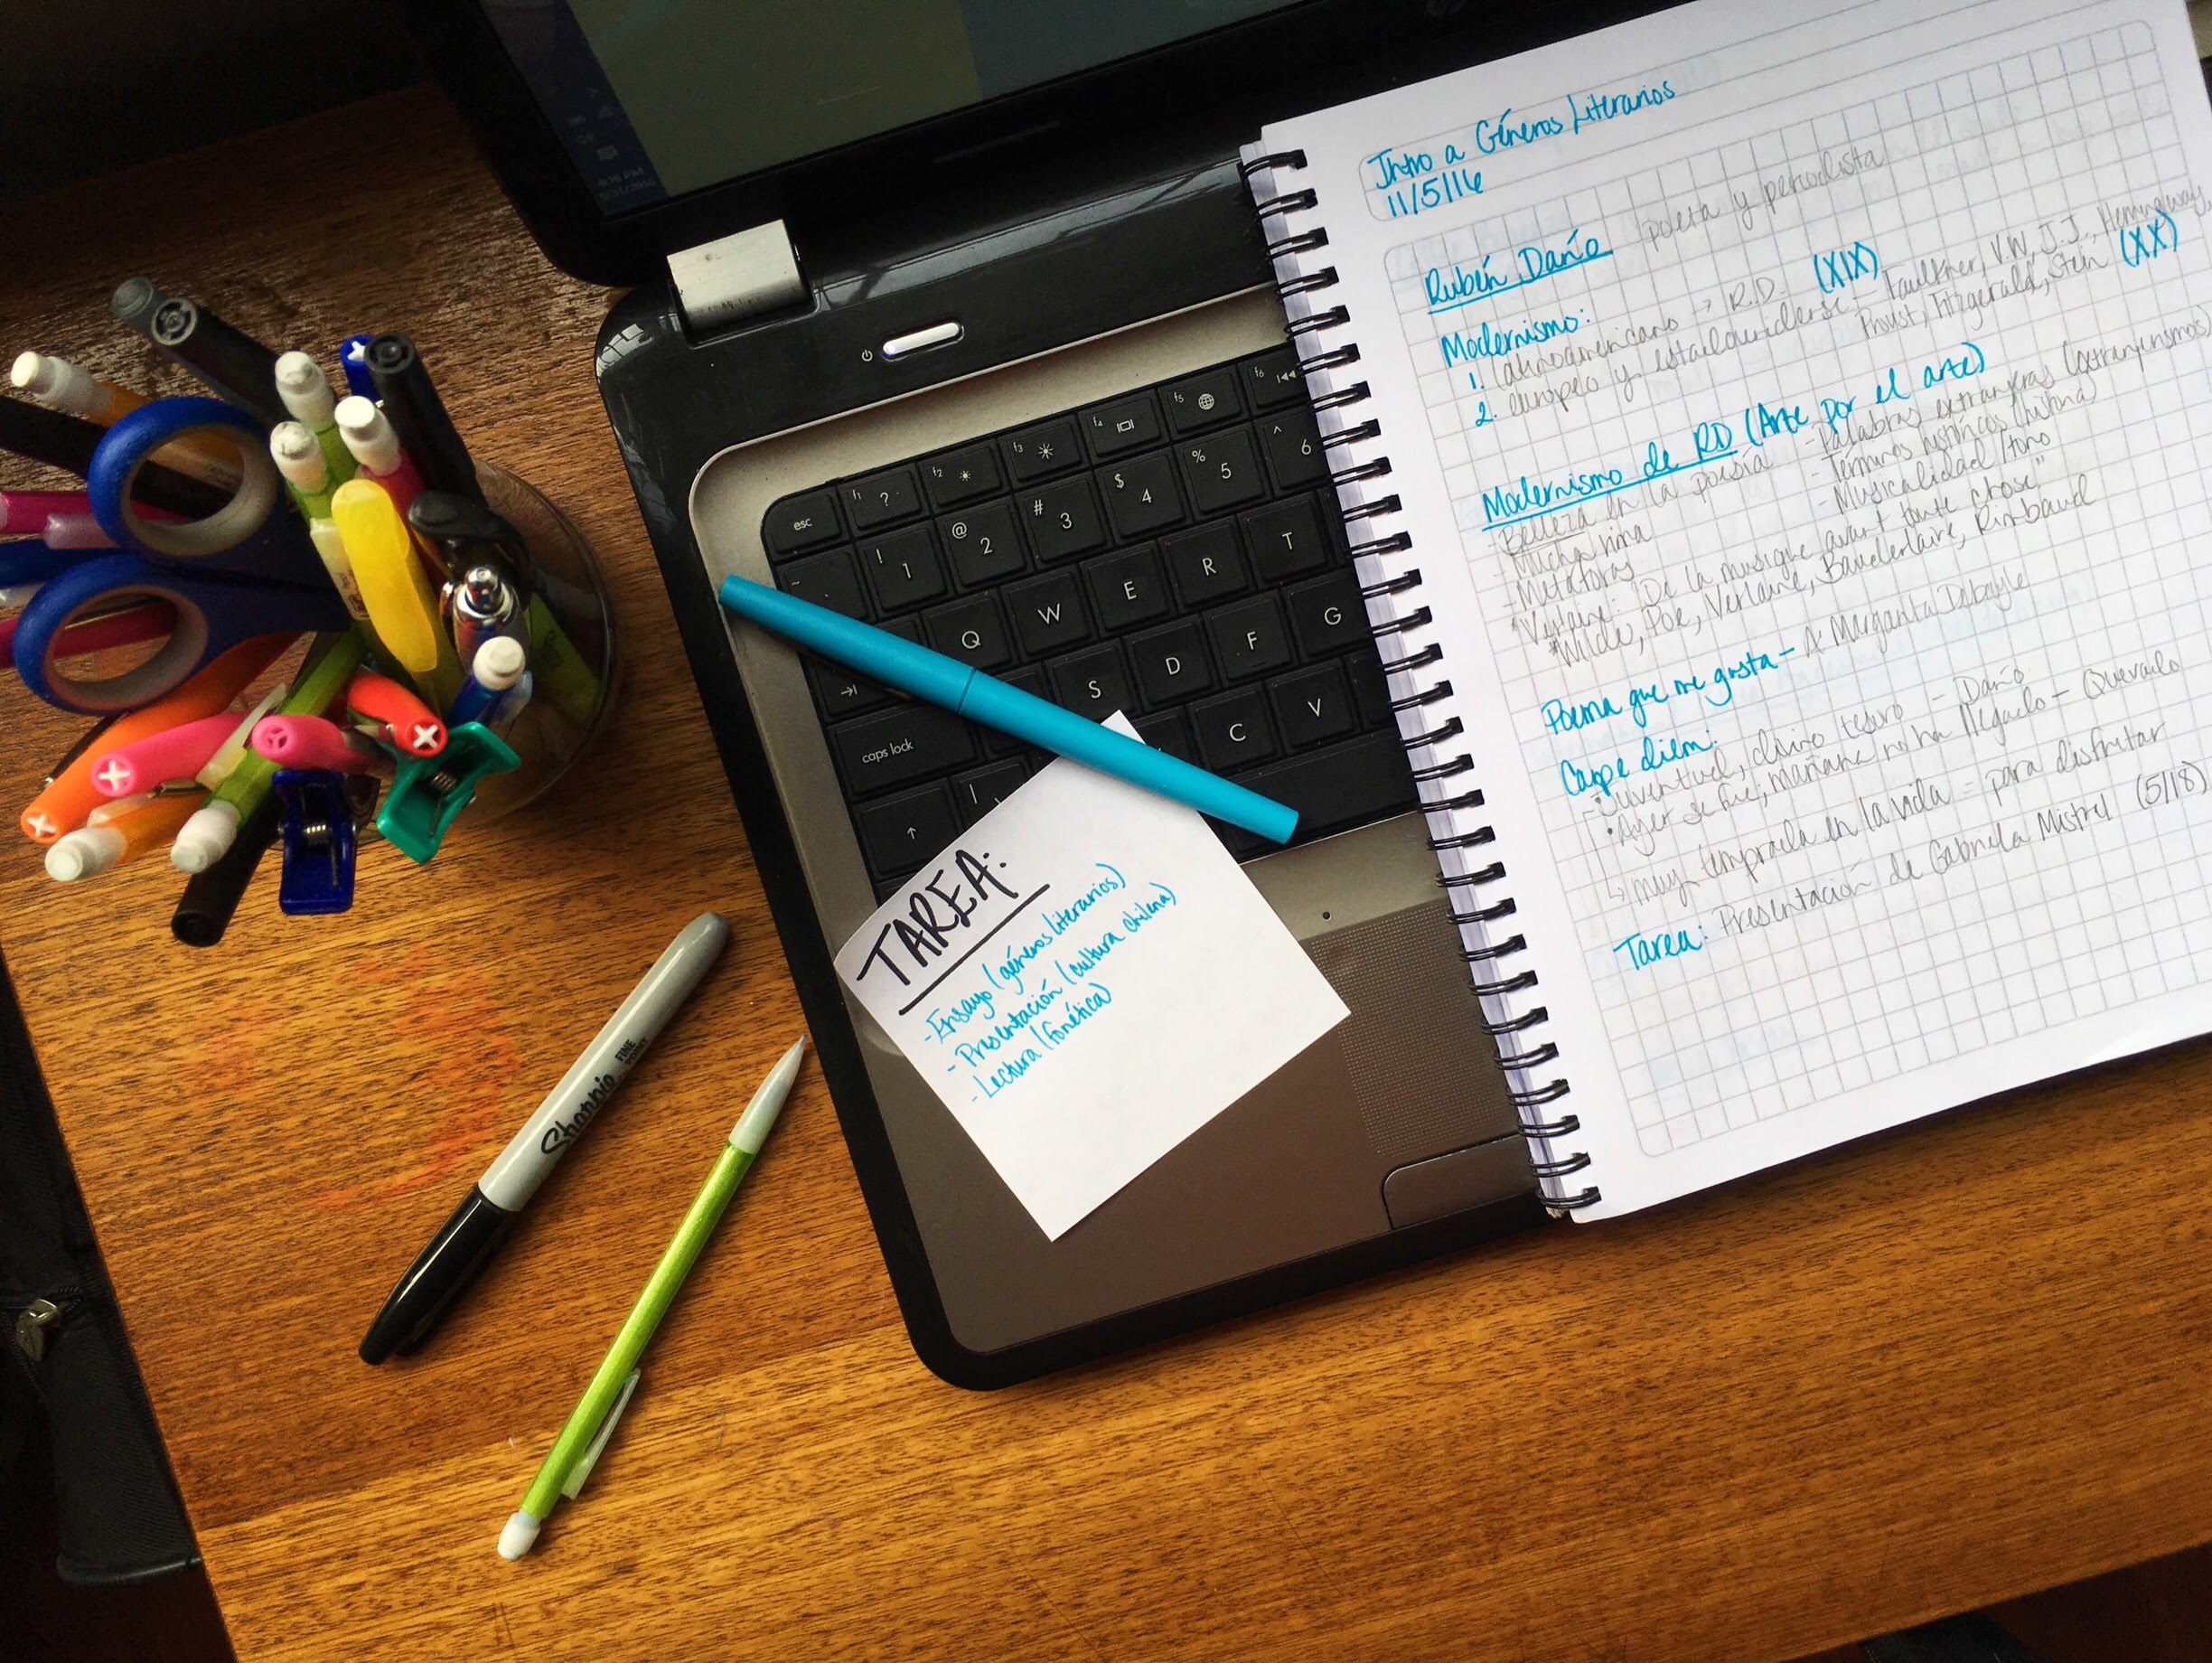 Intro a Géneros Literarios
11/5/16
Rubén Darío poeta y periodista
Modernismo:
1. latinoamericano → R.D. (XIX)
2. europeo y estadounidense – Faulkner, V.W., J.J., Hemingway,
Proust, Fitzgerald, Stein (XX)
Modernismo de RD (Arte por el arte)
- Belleza en la poesía
- Mucha rima
- Metáforas
- Palabras extranjeras (extranjerismos)
- Términos históricos
- Musicalidad / tono
* Verlaine: "De la musique avant toute chose"
* Wilde, Poe, Verlaine, Baudelaire, Rimbaud
Poema que me gusta – A Margarita Debayle
Carpe diem:
• Juventud, divino tesoro – Darío
• Ayer se fue; mañana no ha llegado – Quevedo
↳ muy temprada en la vida = para disfrutar
Tarea: Presentación de Gabriela Mistral (5/18)
TAREA:
- Ensayo (géneros literarios)
- Presentación (cultura chilena)
- Lectura (fonética)
Sharpie
FINE POINT
esc
f1 ?
f2
f3
f4
f5
f6
~
! 1
@ 2
# 3
$ 4
% 5
^ 6
Q W E R T
S D F G
caps lock
C V